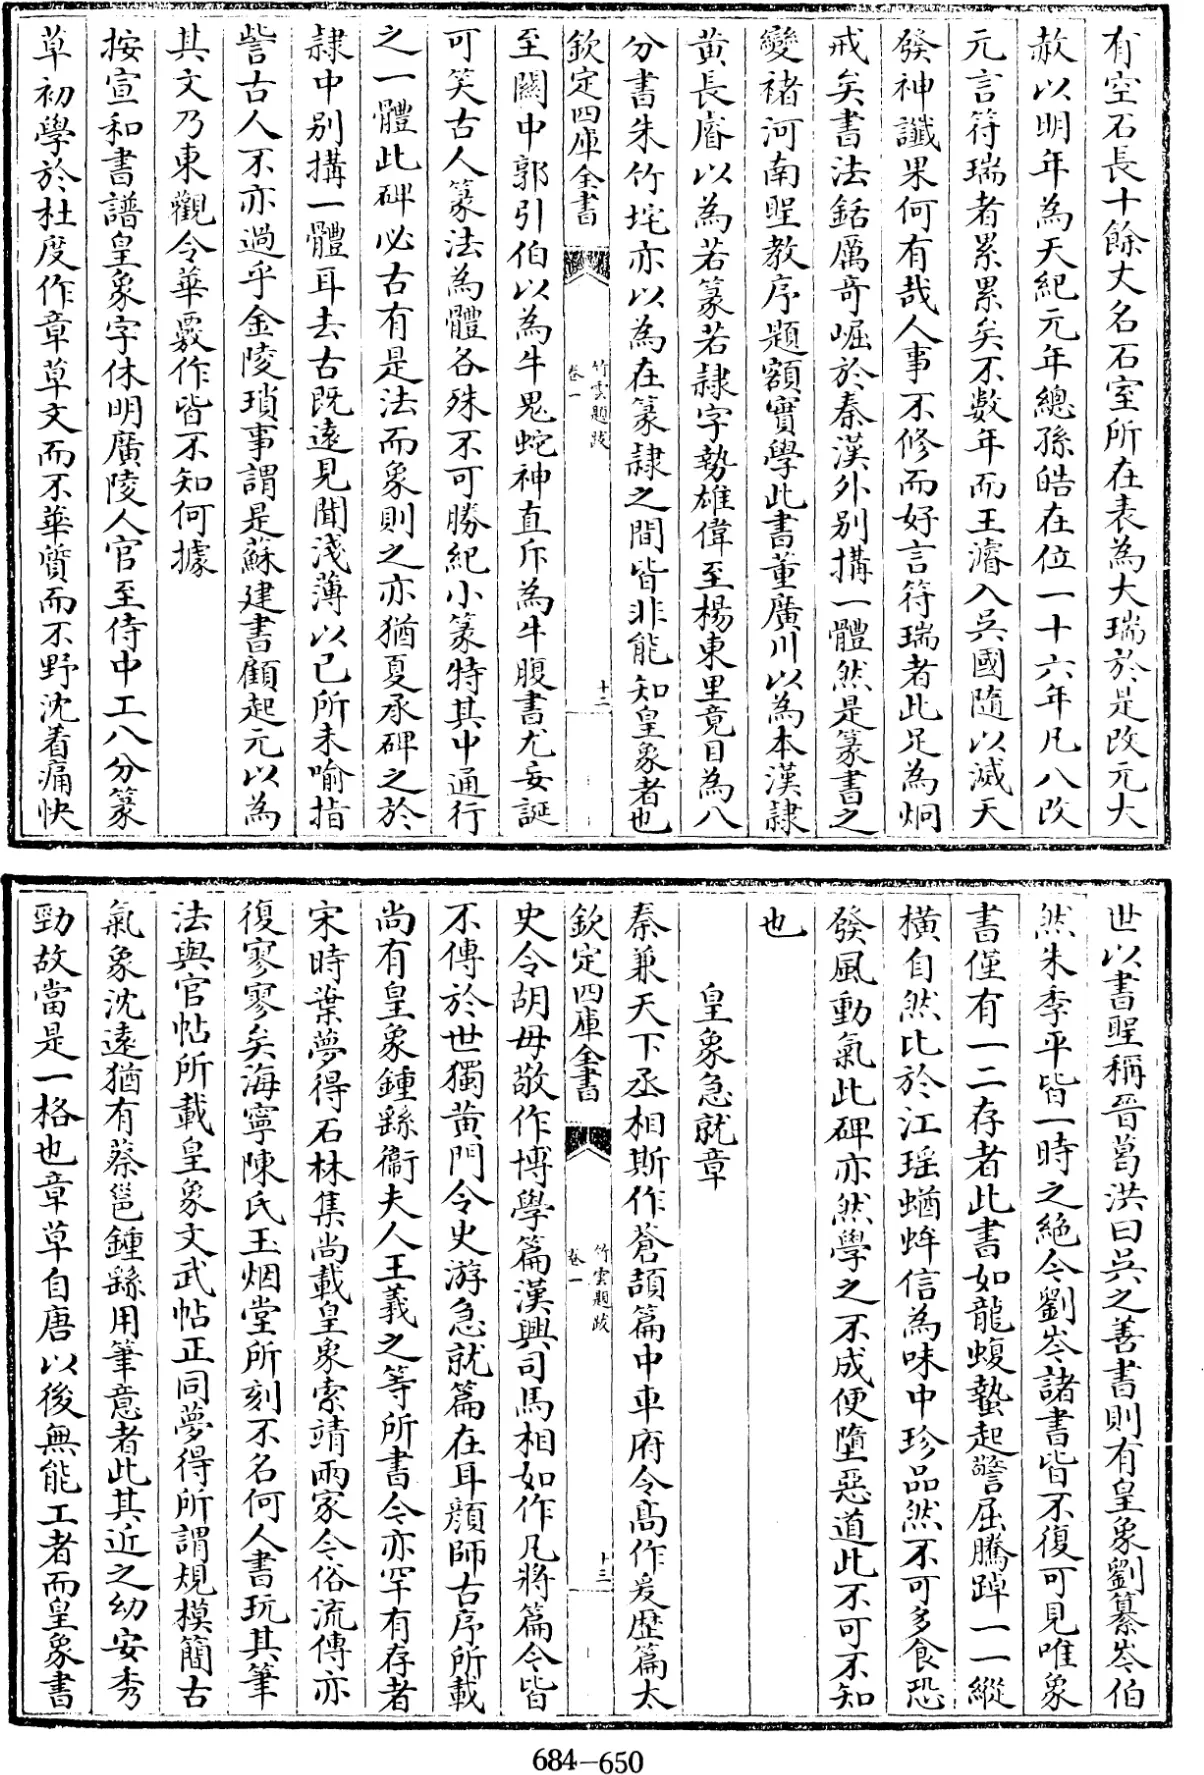 有空石長十餘丈名石室所在表為大瑞於是改元大
赦以明年為天紀元年總孫皓在位一十六年凡八改
元言符瑞者累累矣不數年而王濬入吳國隨以滅天
發神讖果何有哉人事不修而好言符瑞者此足為炯
戒矣書法銛厲奇崛於秦漢外別搆一體然是篆書之
變褚河南聖教序題額實學此書董廣川以為本漢隸
黃長睿以為若篆若隸字勢雄偉至楊東里竟目為八
分書朱竹垞亦以為在篆隸之間皆非能知皇象者也
欽定四庫全書
竹雲題跋
卷一
十二
至關中郭引伯以為牛鬼蛇神直斥為牛腹書尤妄誕
可笑古人篆法為體各殊不可勝紀小篆特其中通行
之一體此碑必古有是法而象則之亦猶夏承碑之於
隸中別搆一體耳去古既遠見聞淺薄以己所未喻指
訾古人不亦過乎金陵瑣事謂是蘇建書顧起元以為
其文乃東觀令華覈作皆不知何據
按宣和書譜皇象字休明廣陵人官至侍中工八分篆
草初學於杜度作章草文而不華質而不野沈着痛快
世以書聖稱晉葛洪曰吳之善書則有皇象劉纂岑伯
然朱季平皆一時之絶今劉岑諸書皆不復可見唯象
書僅有一二存者此書如龍蝮蟄起警屈騰踔一一縱
橫自然比於江瑶蝤蛑信為味中珍品然不可多食恐
發風動氣此碑亦然學之不成便墮惡道此不可不知
也
皇象急就章
秦兼天下丞相斯作蒼頡篇中車府令高作爰歴篇太
欽定四庫全書
竹雲題跋
卷一
十三
史令胡毋敬作博學篇漢興司馬相如作凡將篇今皆
不傳於世獨黃門令史游急就篇在耳顏師古序所載
尚有皇象鍾繇衞夫人王羲之等所書今亦罕有存者
宋時葉夢得石林集尚載皇象索靖兩家今俗流傳亦
復寥寥矣海寧陳氏玉烟堂所刻不名何人書玩其筆
法與官帖所載皇象文武帖正同夢得所謂規模簡古
氣象沈遠猶有蔡邕鍾繇用筆意者此其近之幼安秀
勁故當是一格也章草自唐以後無能工者而皇象書
684-650